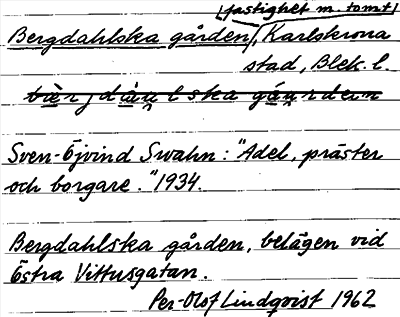 (fastighet m. tomt)
Bergdahlska gården, Karlskrona
stad, Blek. l.
Sven-Öjvind Swahn: "Adel, präster
och borgare." 1934.
Bergdahlska gården, belägen vid
Östra Vittusgatan.
Per-Olof Lindqvist 1962